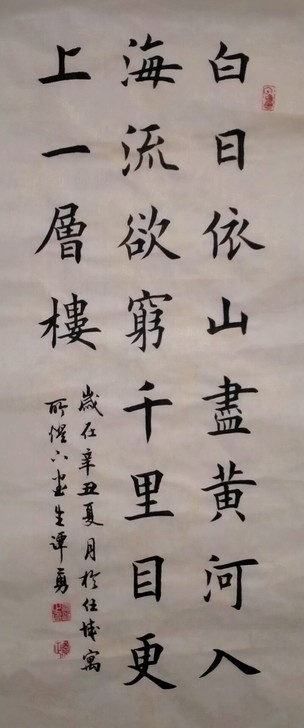 白日依山盡黄河入
海流欲窮千里目更
上一層樓
歲在辛丑夏月於任城寓
所惺六畫生譚勇